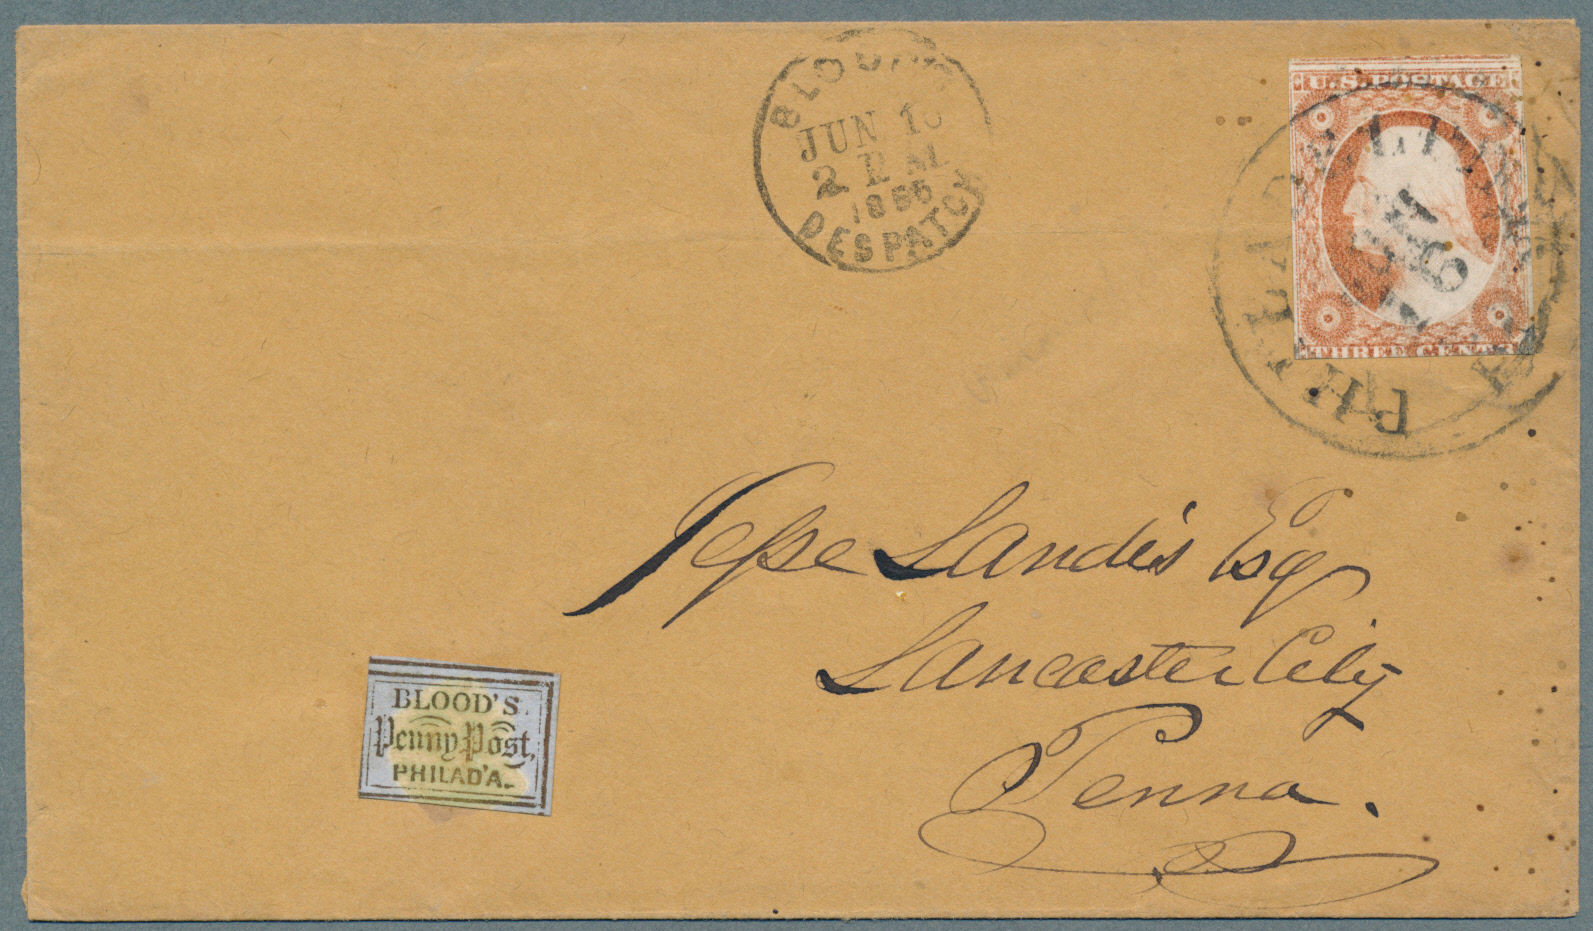 BLOOD'S
JUN 16
2 P M.
1855
DESPATCH
U.S. POSTAGE
THREE CENTS
PHILADELPHIA
JUN
16
Jesse Landis Esq
Lancaster City
Penna.
BLOOD'S
Penny Post,
PHILAD'A.